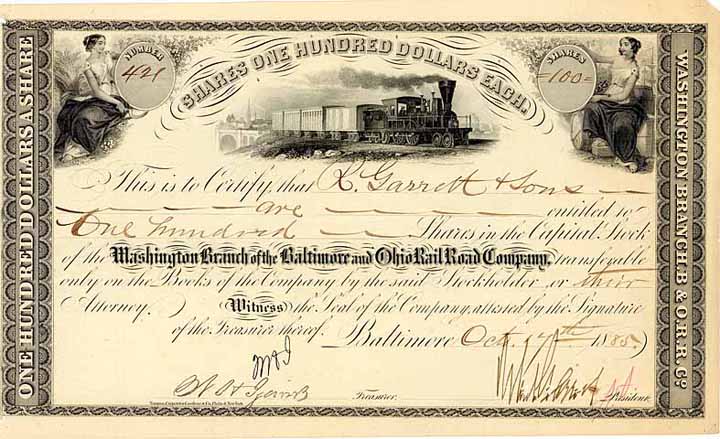 SHARES ONE HUNDRED DOLLARS EACH.
NUMBER
421
SHARES
=100=
ONE HUNDRED DOLLARS A SHARE
WASHINGTON BRANCH B. & O. R. R. Co.
This is to Certify, that R. Garrett & Sons
are entitled to
One hundred Shares in the Capital Stock
of the Washington Branch of the Baltimore and Ohio Rail Road Company, transferable
only on the Books of the Company by the said Stockholder or their
Attorney. Witness the Seal of the Company, attested by the Signature
of the Treasurer thereof. Baltimore Oct. 17th 1885
Treasurer.
President.